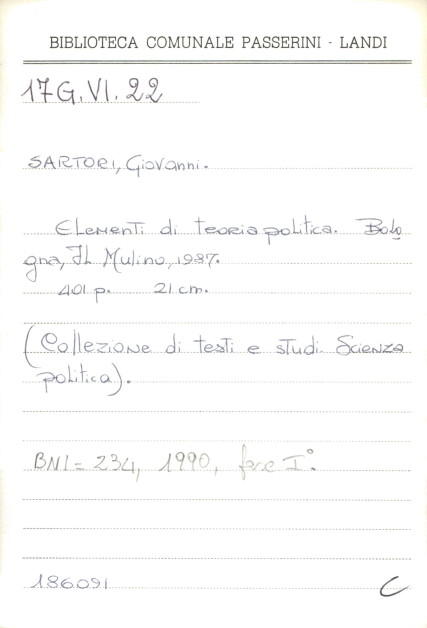 BIBLIOTECA COMUNALE PASSERINI - LANDI
17G.VI.22
SARTORI, Giovanni.
Elementi di teoria politica. Bolo
gna, Il Mulino, 1987.
401 p. 21 cm.
(Collezione di testi e studi. Scienza
politica).
BNI = 234, 1990, fasc I°.
186091 C